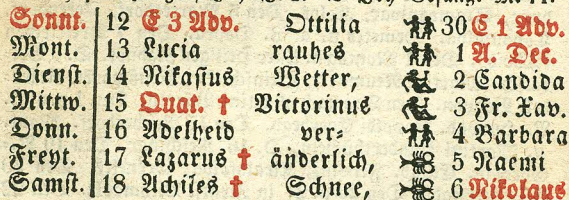 Sonnt. 12 E 3 Adv. Ottilia 30 E. 1 Adv.
Mont. 13 Lucia rauhes 1 A. Dec.
Dienst. 14 Nikasius Wetter, 2 Candida
Mittw. 15 Quat. † Victorinus 3 Fr. Xav.
Donn. 16 Adelheid ver- 4 Barbara
Freyt. 17 Lazarus † änderlich, 5 Naemi
Samst. 18 Achiles † Schnee, 6 Nikolaus